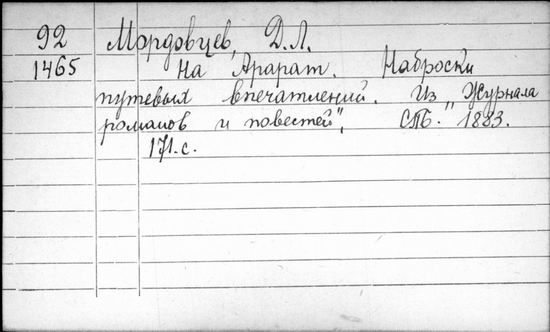 92 Мордовцев, Д.Л.
1465 На Арарат. Наброски
путевых впечатлений. Из „Журнала
романов и повестей", СПБ. 1883.
171.с.